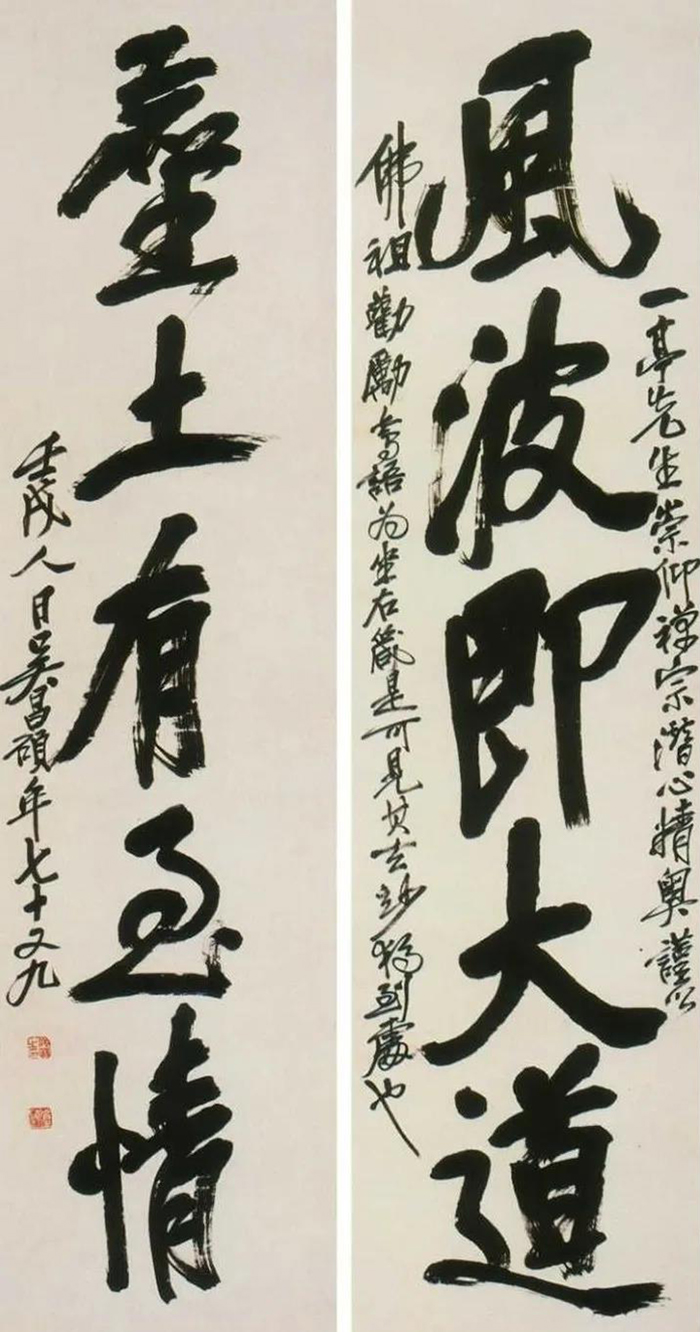 風波即大道
一亭先生崇仰禪宗潛心精奧謹以
佛祖勸勵等語為坐右箴是可見其玄妙獨到處也
塵土有至情
壬戌人日吳昌碩年七十又九